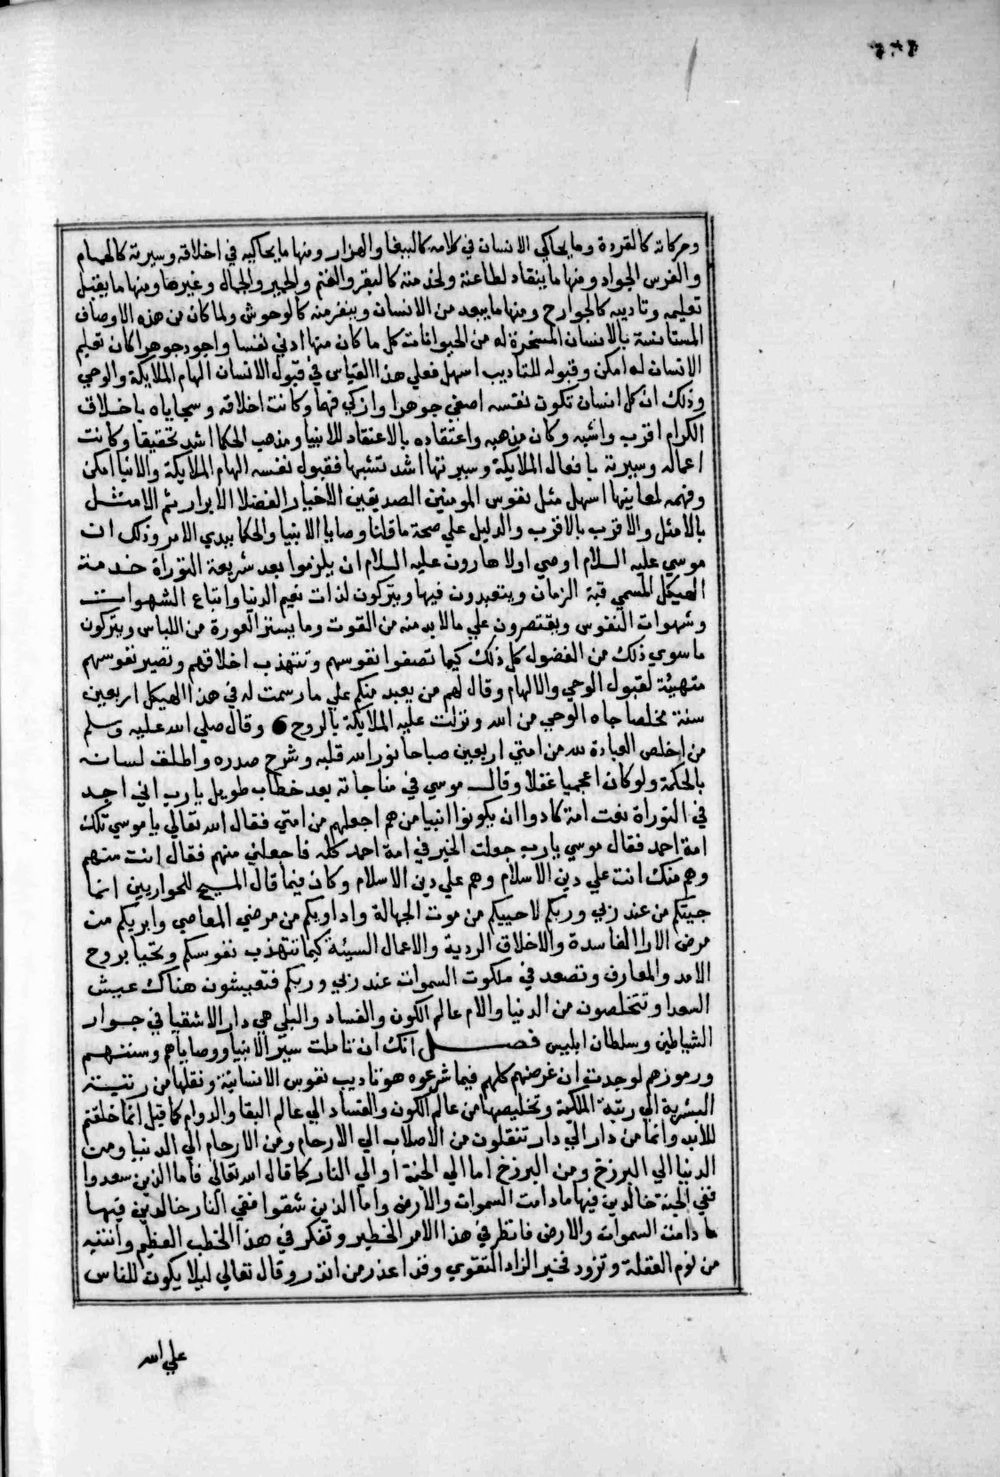 وحركاته كالقردة وما يحاكي الانسان في كلامه كالببغا والهزار ومنها ما يحاكيه في اخلاقه وسيرته كالحمام
والفرس الجواد ومنها ما ينقاد لطاعته ولخدمته كالبقر والغنم والحمير والجمال وغيرها ومنها ما يقبل
تعليمه وتاديبه كالجوارح ومنها ما يبعد من الانسان وينفر منه كالوحوش ولما كان من هذه الاوصاف
المستانسة بالانسان المسخرة له من الحيوانات كل ما كان منها ادني نفسا واجود جوهرا كان تعليم
الانسان له امكن وقبوله للتاديب اسهل فعلي هذا القياس في قبول الانسان الهام الملايكة والوحي
وذلك ان كل انسان تكون نفسه اصفي جوهرا وازكي فهما وكانت اخلاقه وسجاياه باخلاق
الكرام اقرب واشبه وكان مذهبه واعتقاده بالاعتقاد للانبيا ومذهب الحكما اشد تحقيقا وكانت
اعماله وسيرته بافعال الملايكة وسيرتها اشد تشبها فقبول نفسه الهام الملايكة والانبيا امكن
وفهمه لمعاينها اسهل مثل نفوس المومنين الصديقين الاخيار الفضلا الابرار ثم الامثل
بالامثل والاقرب بالاقرب والدليل علي صحة ما قلنا وصايا الانبيا والحكما ببدي الامر وذلك ان
موسي عليه السلام اوصي اولا هارون عليه السلام ان يلزموا بعد شريعة التوراة خدمة
الهيكل المسمي قبة الزمان ويتعبدون فيها ويتركون لذات نعيم الدنيا واتباع الشهوات
وشهوات النفوس ويقتصرون علي ما لابد منه من القوت وما يستر العورة من اللباس ويتركون
ما سوي ذلك من الفضول كل ذلك كيما تصفوا نفوسهم وتتهذب اخلاقهم وتصير نفوسهم
متهيئة لقبول الوحي والالهام وقال لهم من يعبد منكم علي ما رسمت له في هذا الهيكل اربعين
سنة مخلصا جاه الوحي من الله ونزلت عليه الملايكة بالروح وقال صلي الله عليه وسلم
من اخلص العبادة لله من امتي اربعين صباحا نور الله قلبه وشرح صدره واطلق لسانه
بالحكمة ولو كان اعجميا غفلا وقال موسي في مناجاته بعد خطاب طويل يارب اني اجد
في التوراة نعت امة كادوا ان يكونوا انبيا من هم اجعلهم من امتي فقال الله تعالي يا موسي تلك
امة احمد فقال موسي يارب جعلت الخير في امة احمد كله فاجعلني منهم فقال انت منهم
وهم منك انت علي دين الاسلام وهم علي دين الاسلام وكان فيما قال المسيح للحواريين انما
جيتكم من عند ربي وربكم لاحييكم من موت الجهالة واداويكم من مرض المعاصي وابريكم من
مرض الارا الفاسدة والاخلاق الردية والاعمال السيئة كيما تتهذب نفوسكم وتحيا بروح
والمعارف وتصعد في ملكوت السموات عند ربي وربكم فتعيشون هناك عيش
السعدا وتتخلصون من الدنيا والام عالم الكون والفساد والبلي هي دار الاشقيا في جوار
الشياطين وسلطان ابليس فصل انك ان تاملت سير الانبيا ووصاياهم وسننهم
ورموزهم لوجدت ان غرضهم كلهم فيما شرعوه هو تاديب نفوس الانسانية ونقلها من رتبة
البشرية الي رتبة الملكية وتخليصها من عالم الكون والفساد الي عالم البقا والدوام كما قيل انما خلقتم
للابد وانما من دار الي دار تنقلون من الاصلاب الي الارحام ومن الارحام الي الدنيا ومن
الدنيا الي البرزخ ومن البرزخ اما الي الجنة او الي النار كما قال الله تعالي فاما الذين سعدوا
ففي الجنة خالدين فيها ما دامت السموات والارض واما الذين شقوا ففي النار خالدين فيها
ما دامت السموات والارض فانظر في هذا الامر الخطير وتفكر في هذا الخطب العظيم وانتبه
من نوم الغفلة وتزود فخير الزاد التقوي وقد اعذر من انذر وقال تعالي ليلا يكون للناس
علي الله